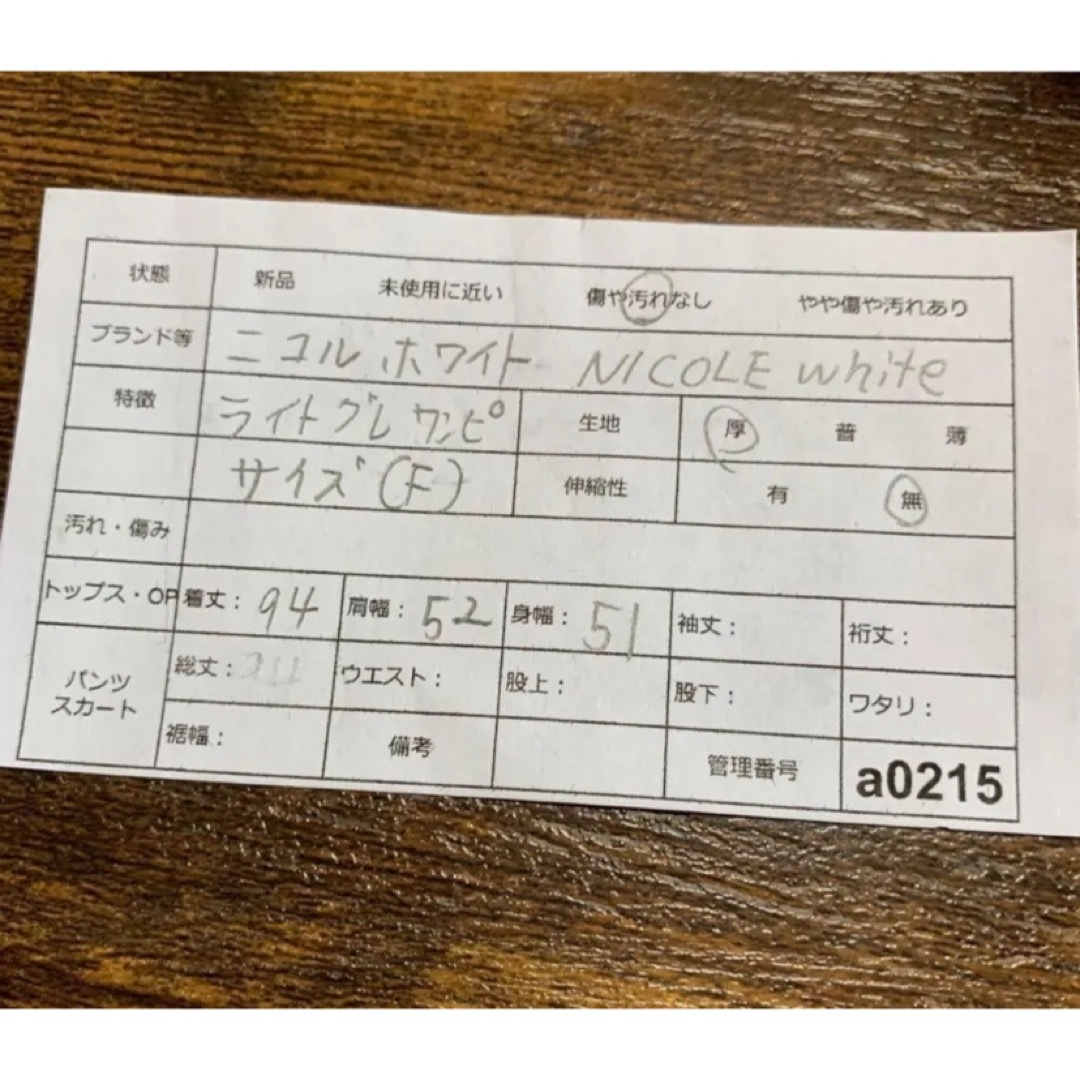 状態 新品 未使用に近い 傷や汚れなし やや傷や汚れあり
ブランド等 ニコル ホワイト NICOLE white
特徴 ライトグレ ワンピ 生地 厚 普 薄
サイズ(F) 伸縮性 有 無
汚れ・傷み
トップス・OP 着丈: 94 肩幅: 52 身幅: 51 袖丈: 裄丈:
パンツ スカート 総丈: ウエスト: 股上: 股下: ワタリ:
裾幅: 備考 管理番号 a0215